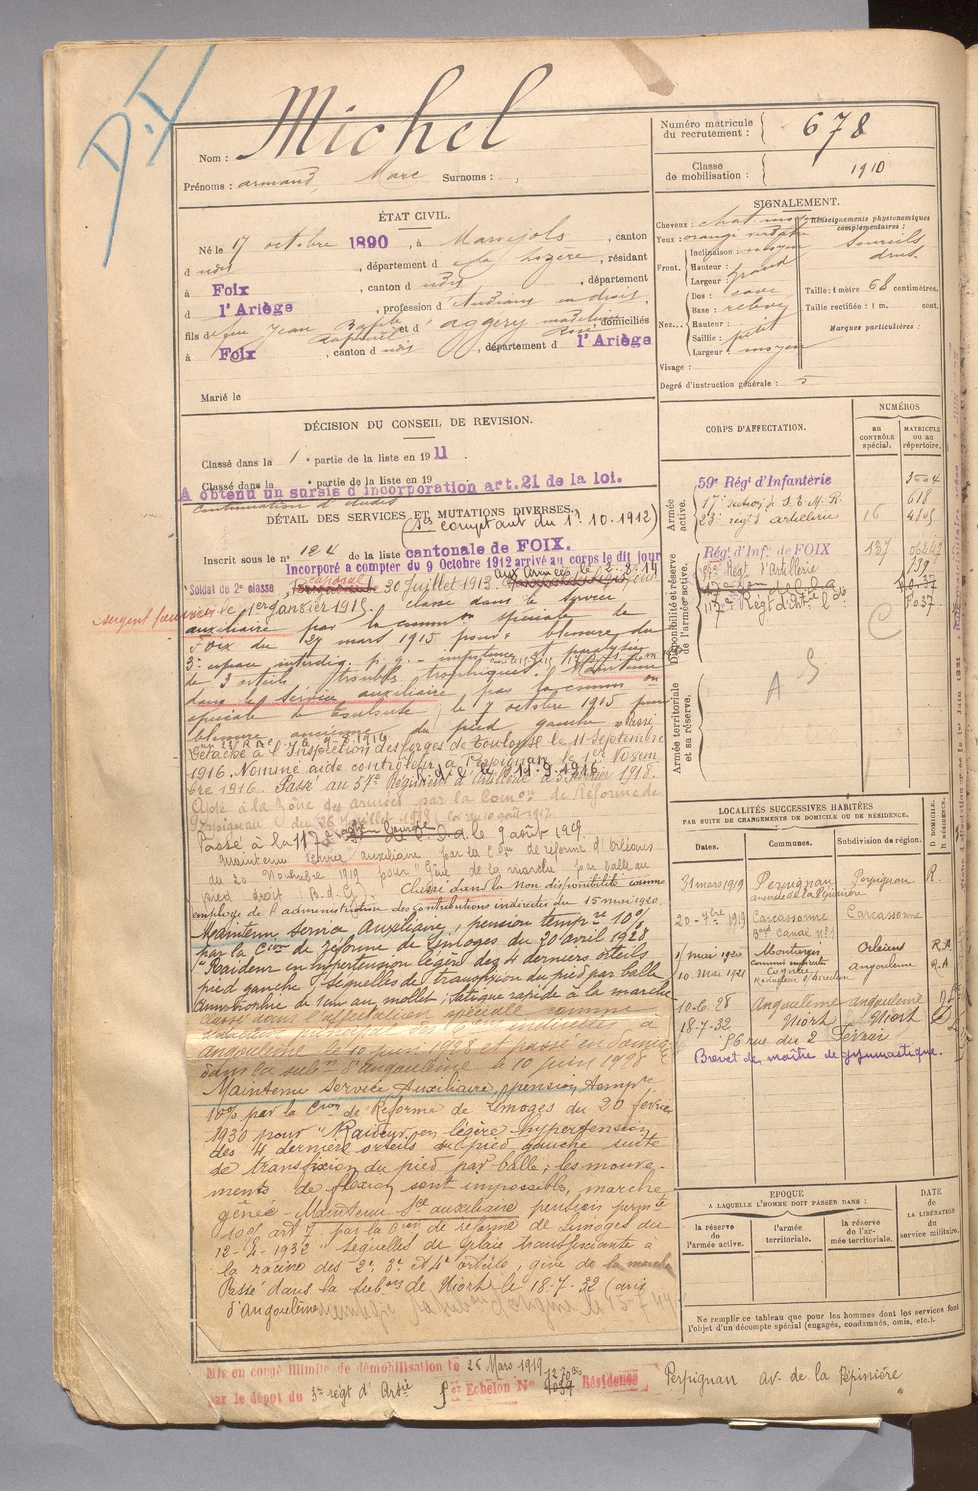 D.I
Michel
Nom :
Prénoms : armand, Marc Surnoms :
Numéro matricule du recrutement : 678
Classe de mobilisation : 1910
ÉTAT CIVIL.
Né le 17 octobre 1890, à Marvejols, canton
d udit, département d e la Lozère, résidant
à Foix, canton d udit, département
d l'Ariège, profession d' étudiant en droit,
fils d e feu Jean Baptiste et d' aggery domiciliés
à Foix, canton d udit, département d l'Ariège
Marié le
SIGNALEMENT.
Cheveux : chat. moyen
Yeux : orangé verdâtre
Front. Inclinaison : moyen
Hauteur :
Largeur : grand
Nez... Dos : cave
Base : relevé
Hauteur :
Saillie : petit
Largeur : moyen
Visage :
Degré d'instruction générale : 5
Renseignements physionomiques complémentaires :
sourcils drus
Taille : 1 mètre 68 centimètres.
Taille rectifiée : 1 m. cent.
Marques particulières :
DÉCISION DU CONSEIL DE REVISION.
Classé dans la 1e partie de la liste en 1911.
Classé dans la e partie de la liste en 19
A obtenu un sursis d'incorporation art. 21 de la loi.
continuation d'études
DÉTAIL DES SERVICES ET MUTATIONS DIVERSES.
(Ses comptant du 1er. 10. 1912)
Inscrit sous le n° 124 de la liste cantonale de FOIX.
Incorporé a compter du 9 Octobre 1912 arrivé au corps le dit jour
Soldat de 2e classe, caporal 30 Juillet 1913. aux Armées le 2.8.14
sergent fourrier le 1er Janvier 1915. classé dans le service
auxiliaire par la common spéciale de
Foix du 27 mars 1915 pour : blessure du
3e espace interdig. p. g. - impotence et paralysie
de 3 orteils troubles trophiques. Maintenu
dans le service auxiliaire, par la common
spéciale de Toulouse, le 7 octobre 1915 pour
blessure ancienne du pied gauche
Détaché à l'Inspection des forges de Toulouse le 11 Septembre
1916. Nommé aide contrôleur à Perpignan le 1er Novem
bre 1916. Passé au 57e Régiment d'Artillerie le 5 Février 1918.
Apte à la zône des armées par la Comon de Réforme de
Perpignan du 26 juillet 1918 loi du 10 août 1917
Passé à la 117e le 9 août 1919.
Maintenu service auxiliaire par la Con de réforme d'Orléans
du 20 Novembre 1919 pour "Gêne de la marche par balle au
pied droit (B. de G). Classé dans la Non disponibilité comme
employé de l'administration des Contributions indirectes du 15 mai 1920.
Maintenu Service Auxiliaire, pension tempre 10%
par la Cion de réforme de Limoges du 20 Avril 1928
"Raideur en hypertension légère des 4 derniers orteils
pied gauche. Séquelles de transfixion du pied par balle
Amyotrophie de 1cm au mollet ; fatigue rapide à la marche
Classé dans l'affectation spéciale comme
Angoulême le 10 juin 1928 et passé en domicile
dans la subon d'Angoulême le 10 juin 1928
Maintenu Service Auxiliaire, pension tempre
10% par la Cion de Réforme de Limoges du 20 février
1930 pour "Raideur en légère hypertension
des 4 derniers orteils du pied gauche suite
de transfixion du pied par balle ; les mouve-
ments de flexion sont impossibles, marche
gênée - Maintenu Sce auxiliaire pension permte
10% art 7 par la Con de réforme de Limoges du
12-4-1932 "séquelles de plaie transfixiante à
la racine des 2e 3e et 4e orteils, gêne de la marche
Passé dans la subon de Niort le 18-7-32 (avis
d'Angoulême
CORPS D'AFFECTATION.
NUMÉROS
au CONTRÔLE spécial.
MATRICULE ou au répertoire.
Armée active.
59e Régt d'Infanterie 3004
17e section de S. E. M. R. 618
23e régt d'artillerie 16
Disponibilité et réserve de l'armée active.
Régt d'Infie de FOIX 137
57e Régt d'Artillerie
117e Régt d'Art 7037
C
A S
Armée territoriale et sa réserve.
LOCALITÉS SUCCESSIVES HABITÉES
PAR SUITE DE CHANGEMENTS DE DOMICILE OU DE RÉSIDENCE.
Dates. Communes. Subdivision de région. D DOMICILE. R RÉSIDENCE.
31 mars 1919 Perpignan Perpignan R.
avenue de la Pépinière
20-9bre 1919 Carcassonne Carcassonne
Bard Canal n° 1
1 mai 1920 Montargis Orléans R.A
10 Mai 1921 Angoulême R.A
10-6-28 Angoulême angoulême D
18-7-32 Niort Niort
56 rue du 24 Février
Brevet de maître de gymnastique.
EPOQUE
A LAQUELLE L'HOMME DOIT PASSER DANS :
la réserve de l'armée active.
l'armée territoriale.
la réserve de l'armée territoriale.
DATE de LA LIBÉRATION du service militaire.
Ne remplir ce tableau que pour les hommes dont les services font l'objet d'un décompte spécial (engagés, condamnés, omis, etc.).
Mis en congé illimité de démobilisation le 26 Mars 1919
par le dépôt du 3e régt d'Artie Échelon N° Résidence Perpignan av. de la Pépinière